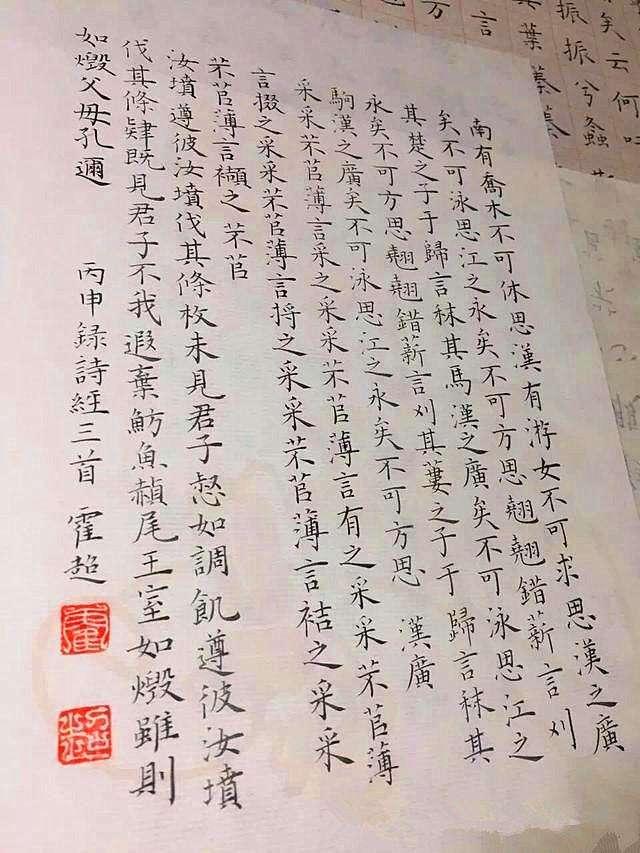 南有喬木不可休思漢有游女不可求思漢之廣
矣不可泳思江之永矣不可方思翹翹錯薪言刈
其楚之子于歸言秣其馬漢之廣矣不可泳思江之
永矣不可方思翹翹錯薪言刈其蔞之子于歸言秣其
駒漢之廣矣不可泳思江之永矣不可方思 漢廣
采采芣苢薄言采之采采芣苢薄言有之采采芣苢薄
言掇之采采芣苢薄言捋之采采芣苢薄言袺之采采
芣苢薄言襭之 芣苢
汝墳遵彼汝墳伐其條枚未見君子惄如調飢遵彼汝墳
伐其條肄既見君子不我遐棄魴魚赬尾王室如燬雖則
如燬父母孔邇 丙申録詩經三首 霍超
矣云何
振振兮螽
其葉蓁蓁
言
万